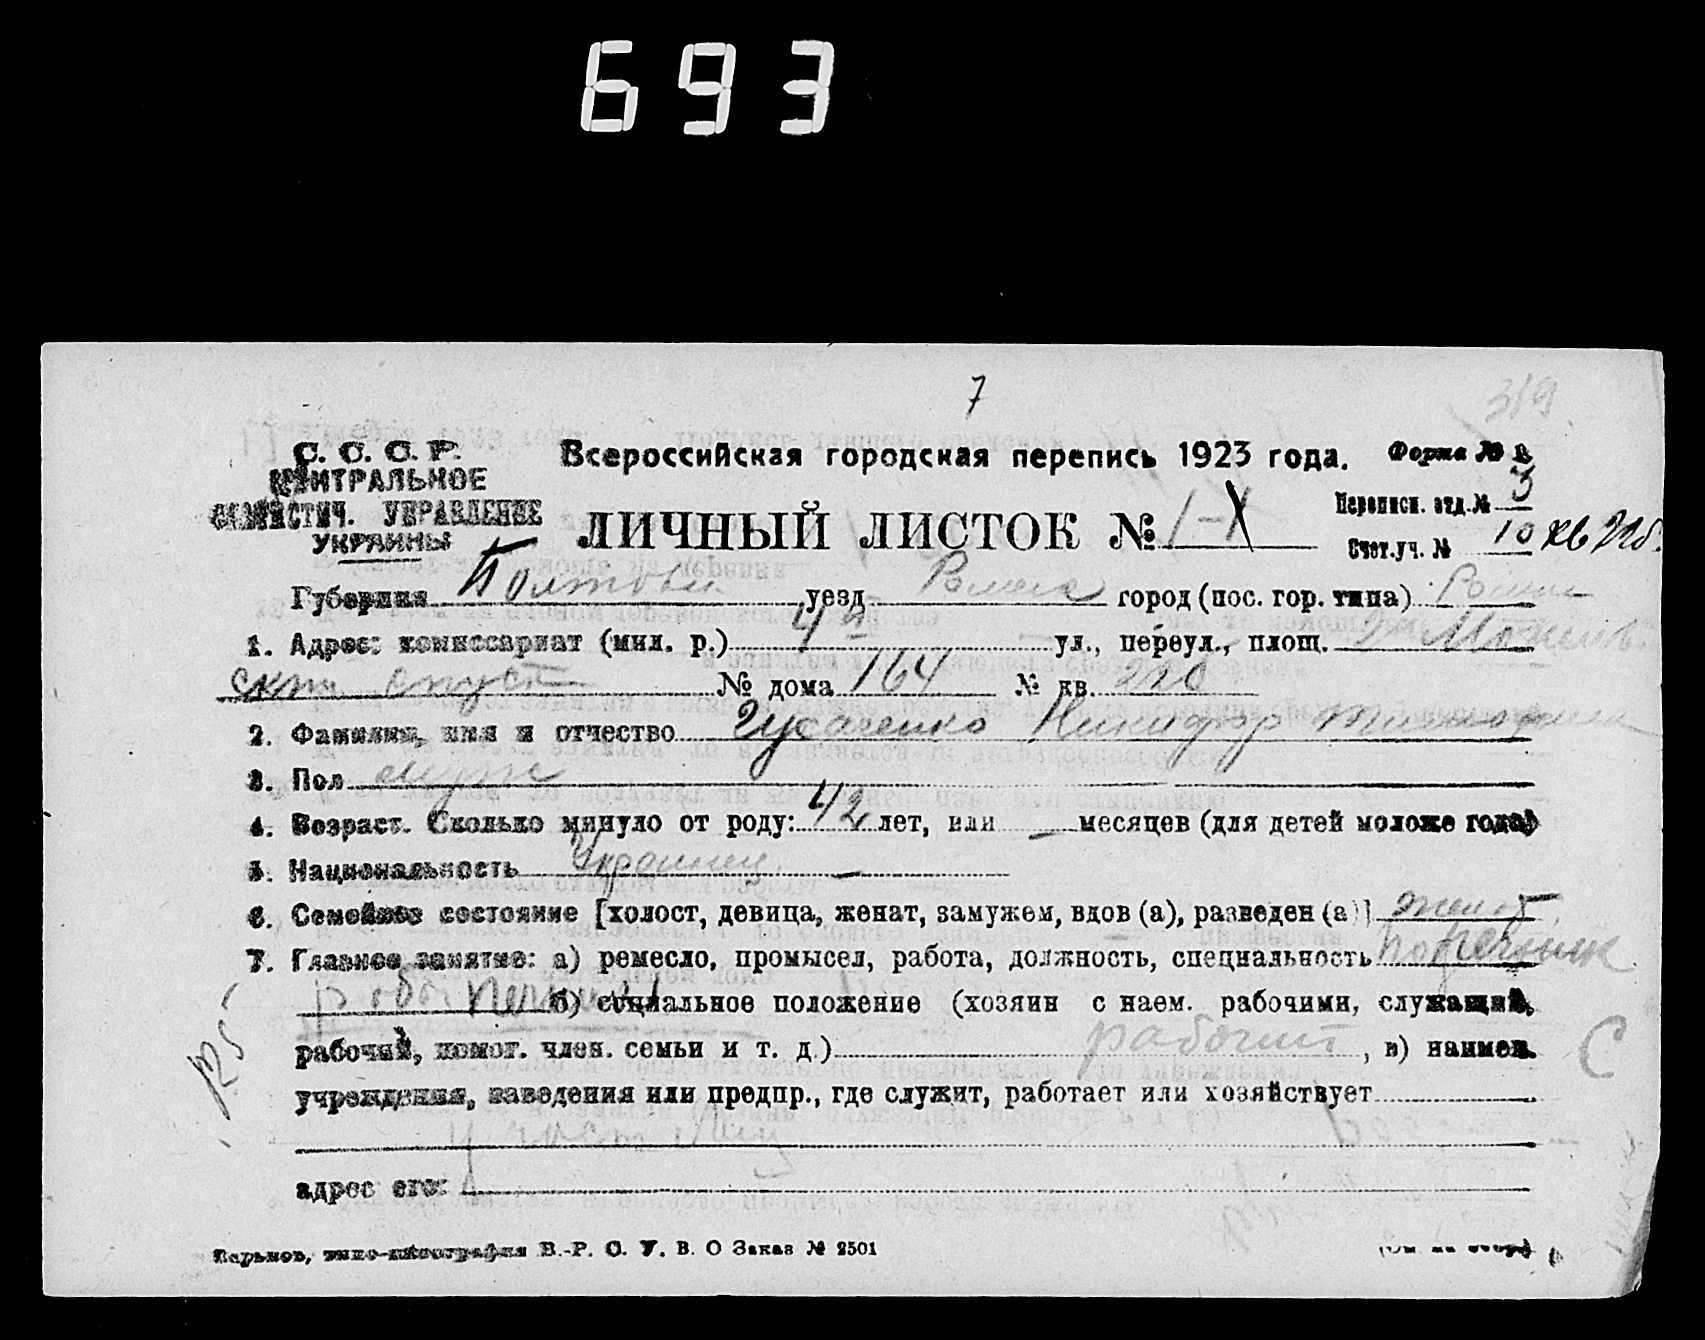 693
7
319
С. С. С. Р.
ЦЕНТРАЛЬНОЕ
СТАТИСТИЧ. УПРАВЛЕНИЕ
УКРАИНЫ
Всероссийская городская перепись 1923 года.
Форма № 2
ЛИЧНЫЙ ЛИСТОК № 1-
Переписн. отд. № 3
Счет. уч. № 10 кв 220.
Губерния Полтавск уезд Ромны город (пос. гор. типа) Ромны
1. Адрес: комиссариат (мил. р.) 42 ул., переул., площ. 2
№ дома 164 № кв. 220
2. Фамилия, имя и отчество Никифор
3. Пол муж
4. Возраст. Сколько минуло от роду: 42 лет, или — месяцев (для детей моложе года)
5. Национальность Украинец
6. Семейное состояние [холост, девица, женат, замужем, вдов (а), разведен (а)] женат
7. Главное занятие: а) ремесло, промысел, работа, должность, специальность
б) социальное положение (хозяин с наем. рабочими, служащий,
рабочий, помог. член. семьи и т. д.) рабочий, в) наимен. С
учреждения, заведения или предпр., где служит, работает или хозяйствует
адрес его:
Харьков, типо-литография В.-Р. С. У. В. О Заказ № 2501